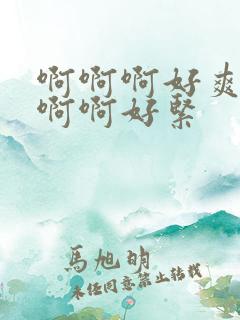 啊啊啊好爽
啊啊好紧
馬旭明
未经同意禁止转载